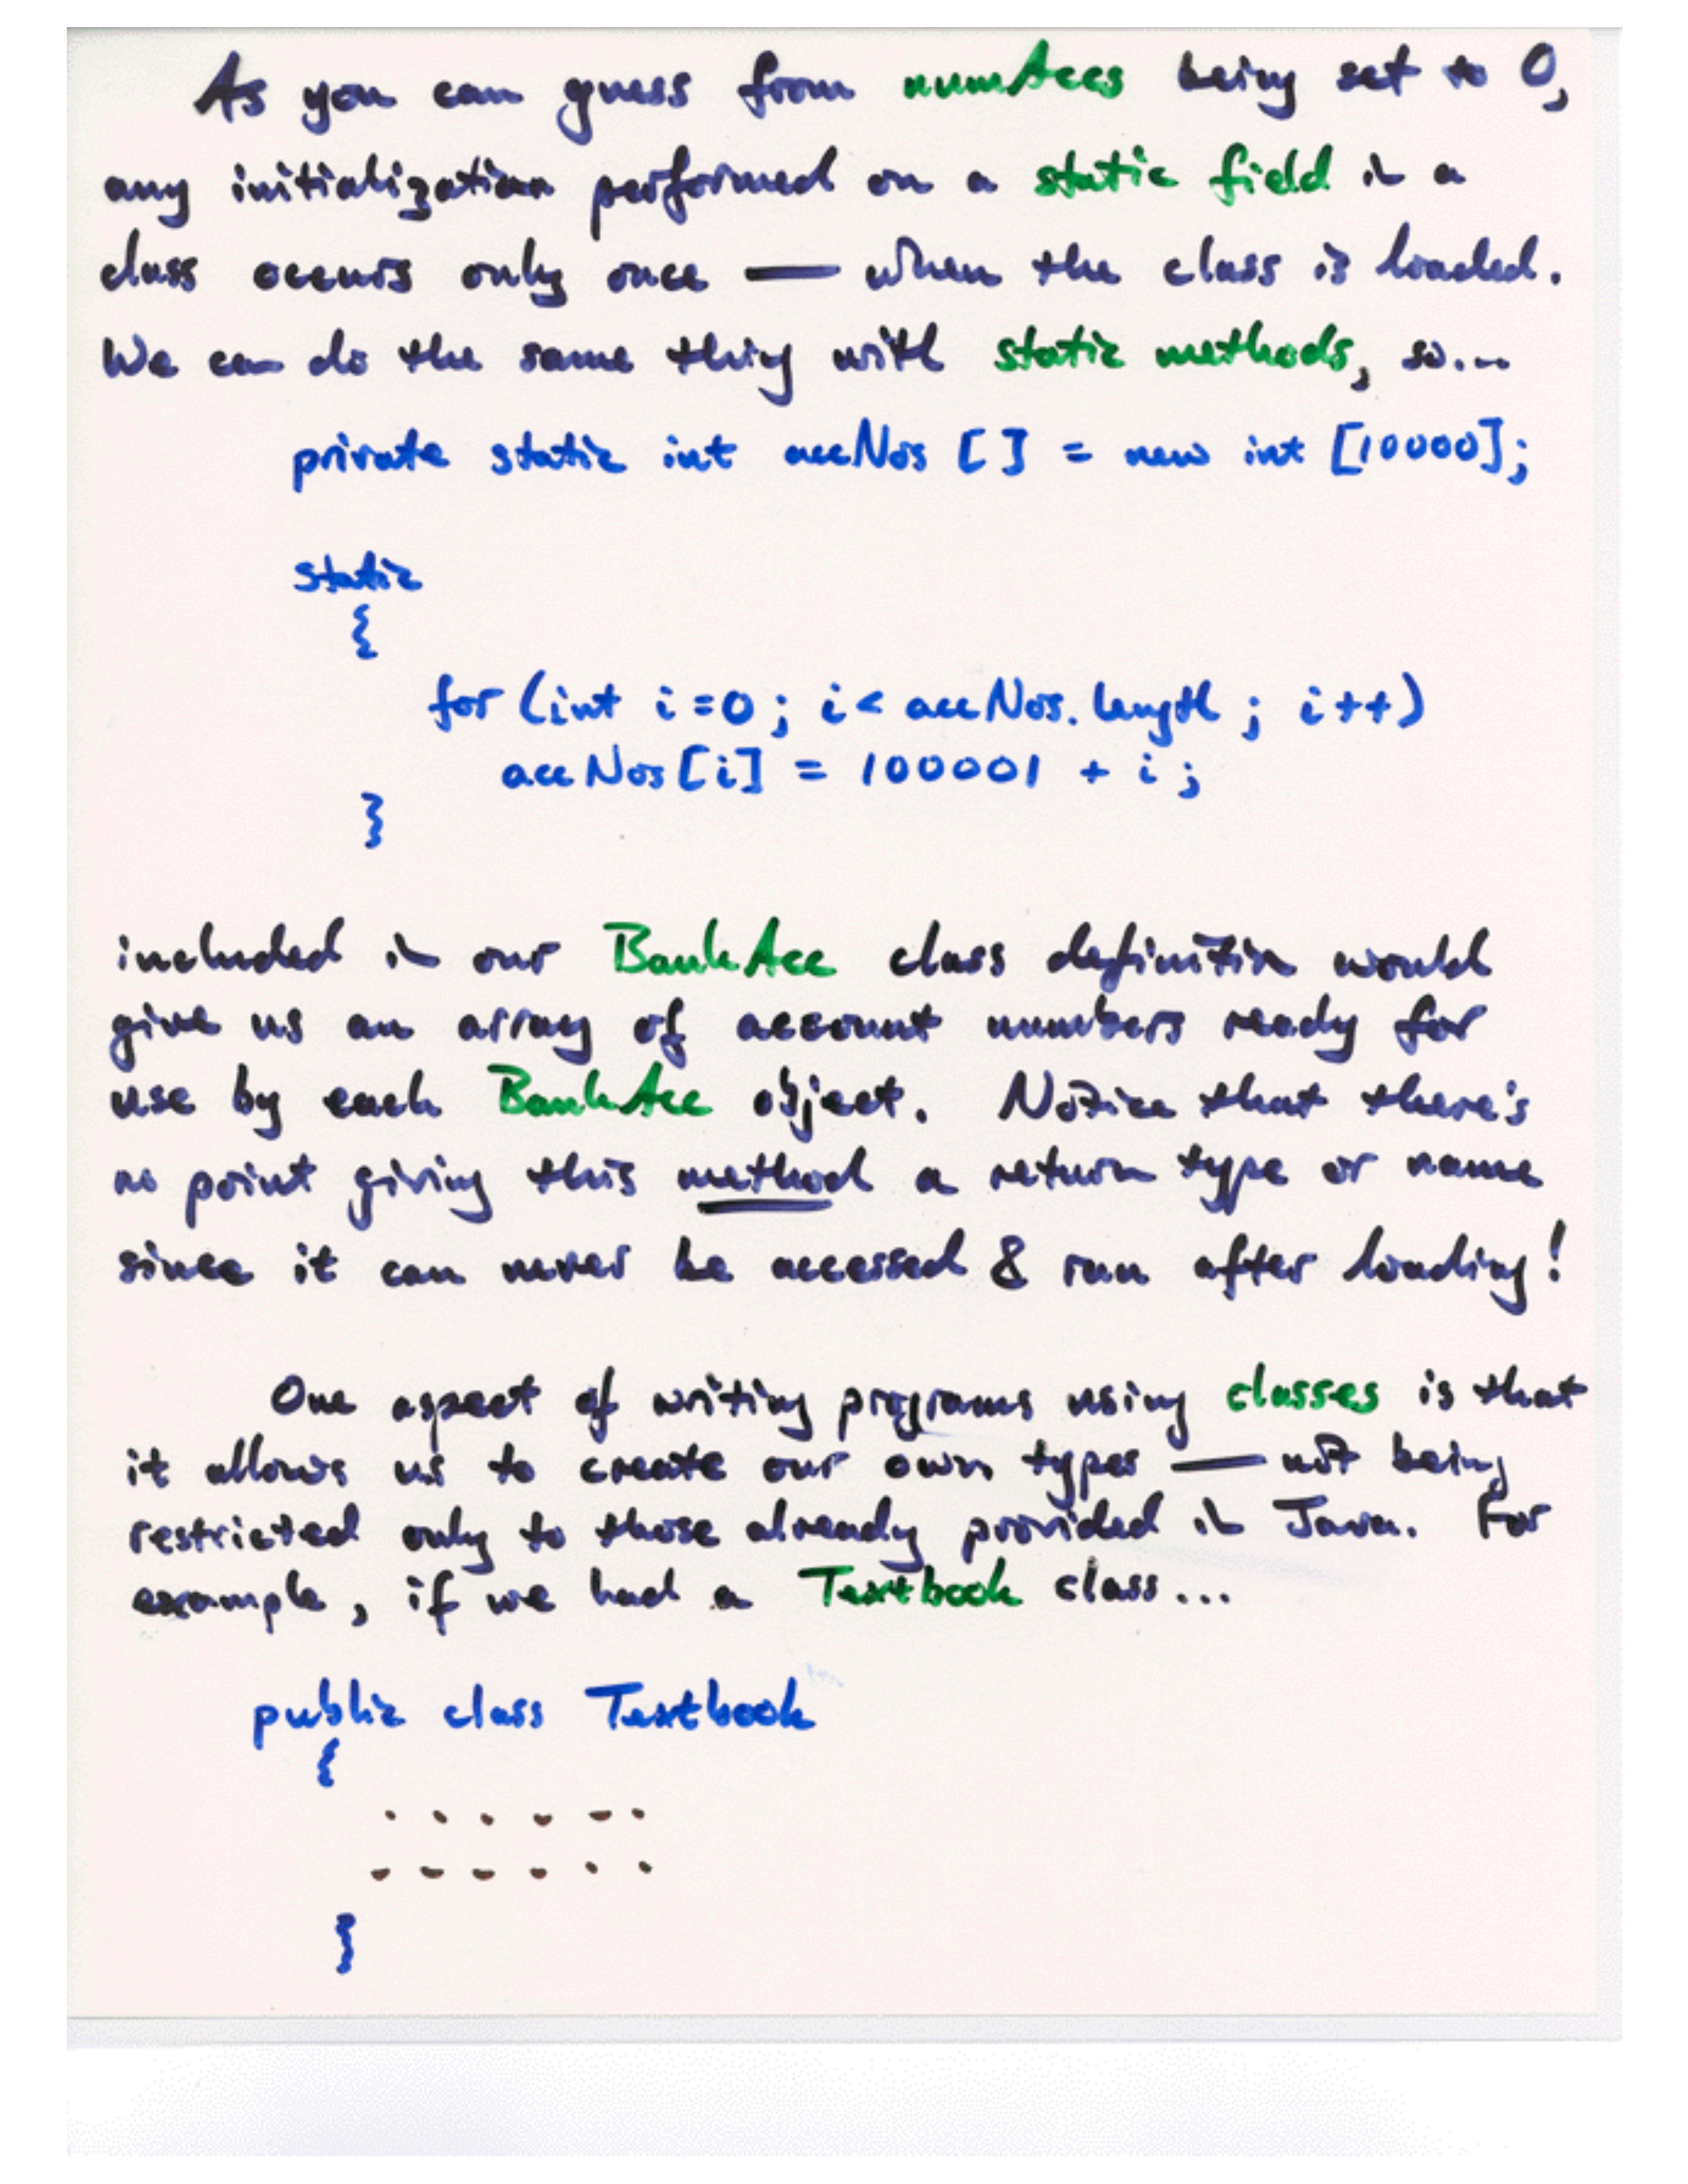 As you can guess from numAccs being set to 0,
any initialization performed on a static field in a
class occurs only once — when the class is loaded.
We can do the same thing with static methods, so...
private static int accNos [ ] = new int [10000];
static
{
for (int i=0; i< accNos.length; i++)
accNos[i] = 100001 + i;
}
included in our BankAcc class definition would
give us an array of account numbers ready for
use by each BankAcc object. Notice that there's
no point giving this method a return type or name
since it can never be accessed & run after loading!
One aspect of writing programs using classes is that
it allows us to create our own types — not being
restricted only to those already provided in Java. For
example, if we had a Textbook class...
public class Textbook
{
. . . . . .
. . . . . .
}